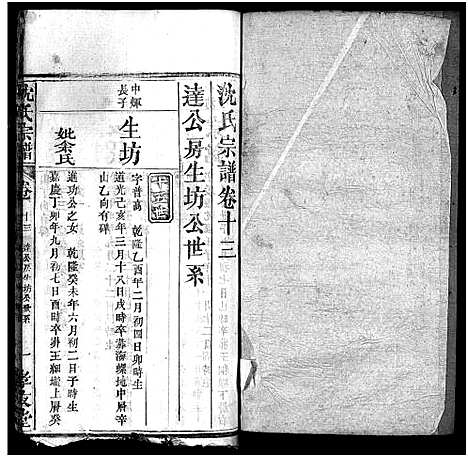 沈氏宗譜卷十三
達公房生坊公世系
中煇長子
生坊
字普萬 乾隆乙酉年二月初四日卯時生
道光己亥年三月十八日戌時卒葬海螺地中層辛
山乙向有碑
妣余氏
進功公之女 乾隆癸未年六月初二日子時生
嘉慶丁卯年九月初七日酉時卒葬王糊壋上層癸
沈氏宗譜
卷十三 達公房生坊公世系 一